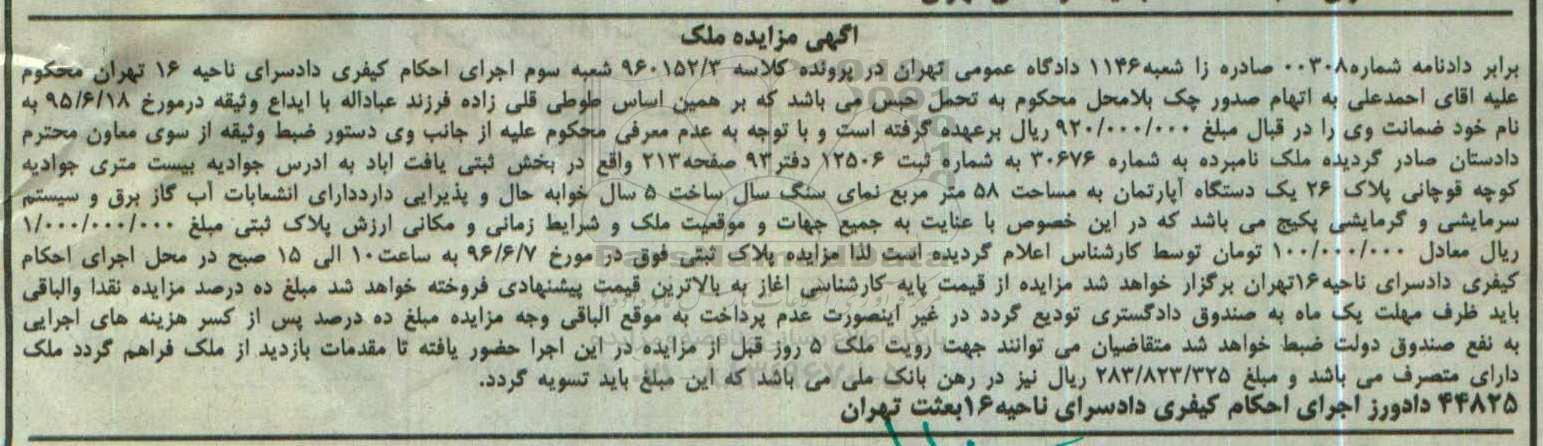 اگهی مزایده ملک
برابر دادنامه شماره۰۰۳۰۸ صادره زا شعبه۱۱۴۶ دادگاه عمومی تهران در پرونده کلاسه ۹۶۰۱۵۲/۳ شعبه سوم اجرای احکام کیفری دادسرای ناحیه ۱۶ تهران محکوم
علیه اقای احمدعلی به اتهام صدور چک بلامحل محکوم به تحمل حبس می باشد که بر همین اساس طوطی قلی زاده فرزند عباداله با ایداع وثیقه درمورخ ۹۵/۶/۱۸ به
نام خود ضمانت وی را در قبال مبلغ ۹۲۰/۰۰۰/۰۰۰ ریال برعهده گرفته است و با توجه به عدم معرفی محکوم علیه از جانب وی دستور ضبط وثیقه از سوی معاون محترم
دادستان صادر گردیده ملک نامبرده به شماره ۳۰۶۷۶ به شماره ثبت ۱۲۵۰۶ دفتر۹۳ صفحه۲۱۳ واقع در بخش ثبتی یافت اباد به ادرس جوادیه بیست متری جوادیه
کوچه قوچانی پلاک ۲۶ یک دستگاه آپارتمان به مساحت ۵۸ متر مربع نمای سنگ سال ساخت ۵ سال خوابه حال و پذیرایی دارددارای انشعابات آب گاز برق و سیستم
سرمایشی و گرمایشی پکیج می باشد که در این خصوص با عنایت به جمیع جهات و موقعیت ملک و شرایط زمانی و مکانی ارزش پلاک ثبتی مبلغ ۱/۰۰۰/۰۰۰/۰۰۰
ریال معادل ۱۰۰/۰۰۰/۰۰۰ تومان توسط کارشناس اعلام گردیده است لذا مزایده پلاک ثبتی فوق در مورخ ۹۶/۶/۷ به ساعت۱۰ الی ۱۵ صبح در محل اجرای احکام
کیفری دادسرای ناحیه۱۶تهران برگزار خواهد شد مزایده از قیمت پایه کارشناسی اغاز به بالاترین قیمت پیشنهادی فروخته خواهد شد مبلغ ده درصد مزایده نقدا والباقی
باید ظرف مهلت یک ماه به صندوق دادگستری تودیع گردد در غیر اینصورت عدم پرداخت به موقع الباقی وجه مزایده مبلغ ده درصد پس از کسر هزینه های اجرایی
به نفع صندوق دولت ضبط خواهد شد متقاضیان می توانند جهت رویت ملک ۵ روز قبل از مزایده در این اجرا حضور یافته تا مقدمات بازدید از ملک فراهم گردد ملک
دارای متصرف می باشد و مبلغ ۲۸۳/۸۲۳/۳۲۵ ریال نیز در رهن بانک ملی می باشد که این مبلغ باید تسویه گردد.
۴۴۸۲۵ دادورز اجرای احکام کیفری دادسرای ناحیه۱۶بعثت تهران